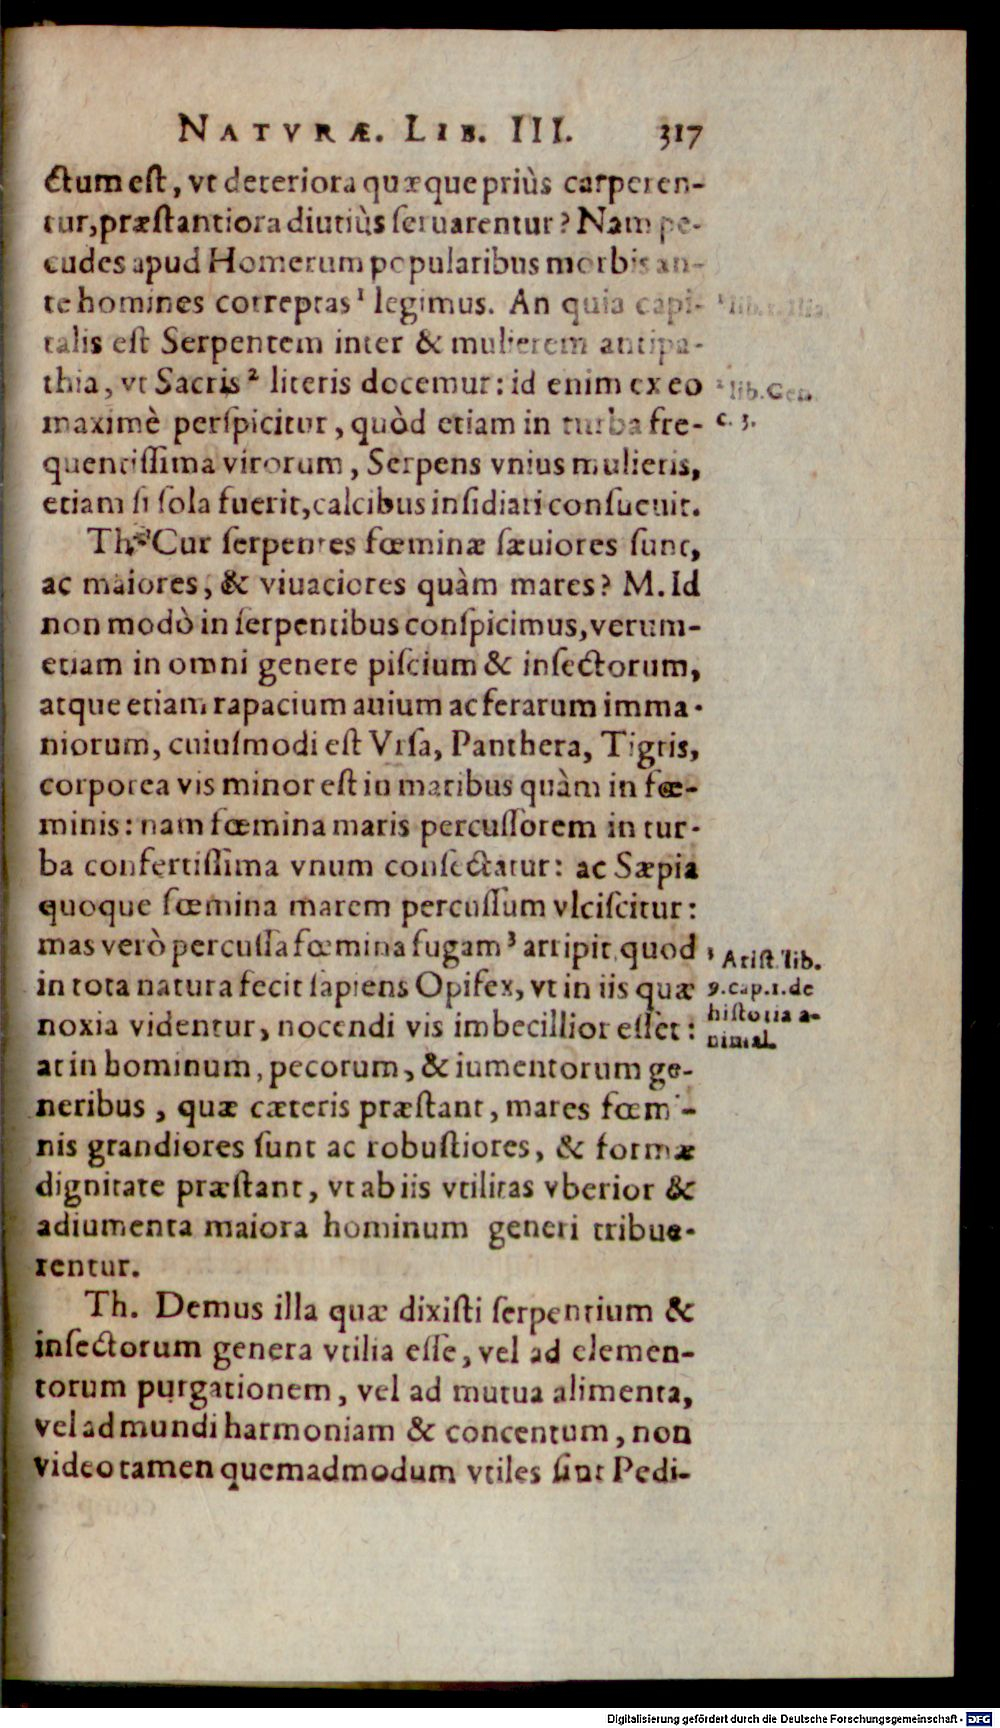 NATVRÆ. LIB. III. 317
ctum est, vt deteriora quæque priùs carperen-
tur, præstantiora diutiùs seruarentur? Nam pe-
cudes apud Homerum popularibus morbis an-
te homines correptas¹ legimus. An quia capi-
talis est Serpentem inter & mulierem antipa-
thia, vt Sacris² literis docemur: id enim ex eo
maximè perspicitur, quòd etiam in turba fre-
quentissima virorum, Serpens vnius mulieris,
etiam si sola fuerit, calcibus insidiari consueuit.
Th. Cur serpentes fœminæ sæuiores sunt,
ac maiores, & viuaciores quàm mares? M. Id
non modò in serpentibus conspicimus, verum-
etiam in omni genere piscium & insectorum,
atque etiam rapacium auium ac ferarum imma-
niorum, cuiusmodi est Vrsa, Panthera, Tigris,
corporea vis minor est in maribus quàm in fœ-
minis: nam fœmina maris percussorem in tur-
ba confertissima vnum consectatur: ac Sæpia
quoque fœmina marem percussum vlciscitur:
mas verò percussa fœmina fugam³ arripit, quod
in tota natura fecit sapiens Opifex, vt in iis quæ
noxia videntur, nocendi vis imbecillior esset:
at in hominum, pecorum, & iumentorum ge-
neribus, quæ cæteris præstant, mares fœmi-
nis grandiores sunt ac robustiores, & formæ
dignitate præstant, vt ab iis vtilitas vberior &
adiumenta maiora hominum generi tribue-
rentur.
Th. Demus illa quæ dixisti serpentium &
insectorum genera vtilia esse, vel ad elemen-
torum purgationem, vel ad mutua alimenta,
vel ad mundi harmoniam & concentum, non
video tamen quemadmodum vtiles sint Pedi-
¹ lib. 1. Ilia.
² lib. Gen.
c. 3.
³ Arist. lib.
9. cap. 1. de
historia a-
nimal.
Digitalisierung gefördert durch die Deutsche Forschungsgemeinschaft - DFG